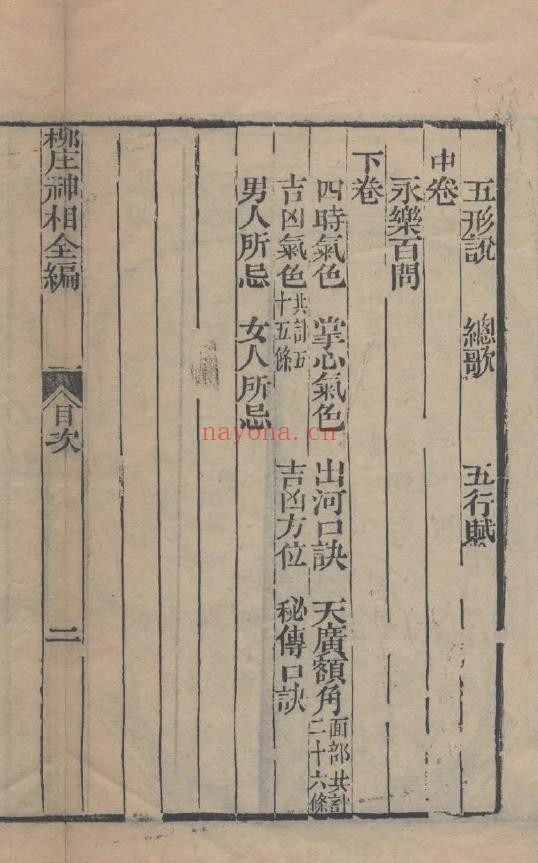 五形說　總歌　五行賦
中卷
永樂百問
下卷
四時氣色　掌心氣色　出河口訣　天廣額角面部共計二十六條
吉凶氣色共計五十五條　吉凶方位　秘傳口訣
男人所忌　女人所忌
柳庄神相全編　目次　二
nayona.cn